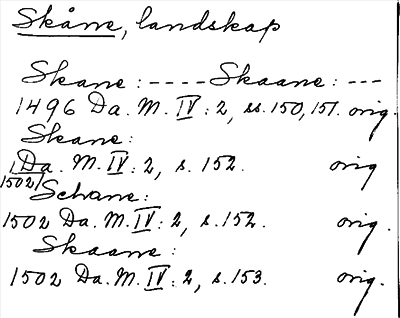 Skåne, landskap
Skane: ---- Skaane: ---
1496 Da. M. IV: 2, ss. 150, 151. orig.
Skane:
1502 Da. M. IV: 2, s. 152. orig
Schane:
1502 Da. M. IV: 2, s. 152. orig.
Skaane:
1502 Da. M. IV: 2, s. 153. orig.